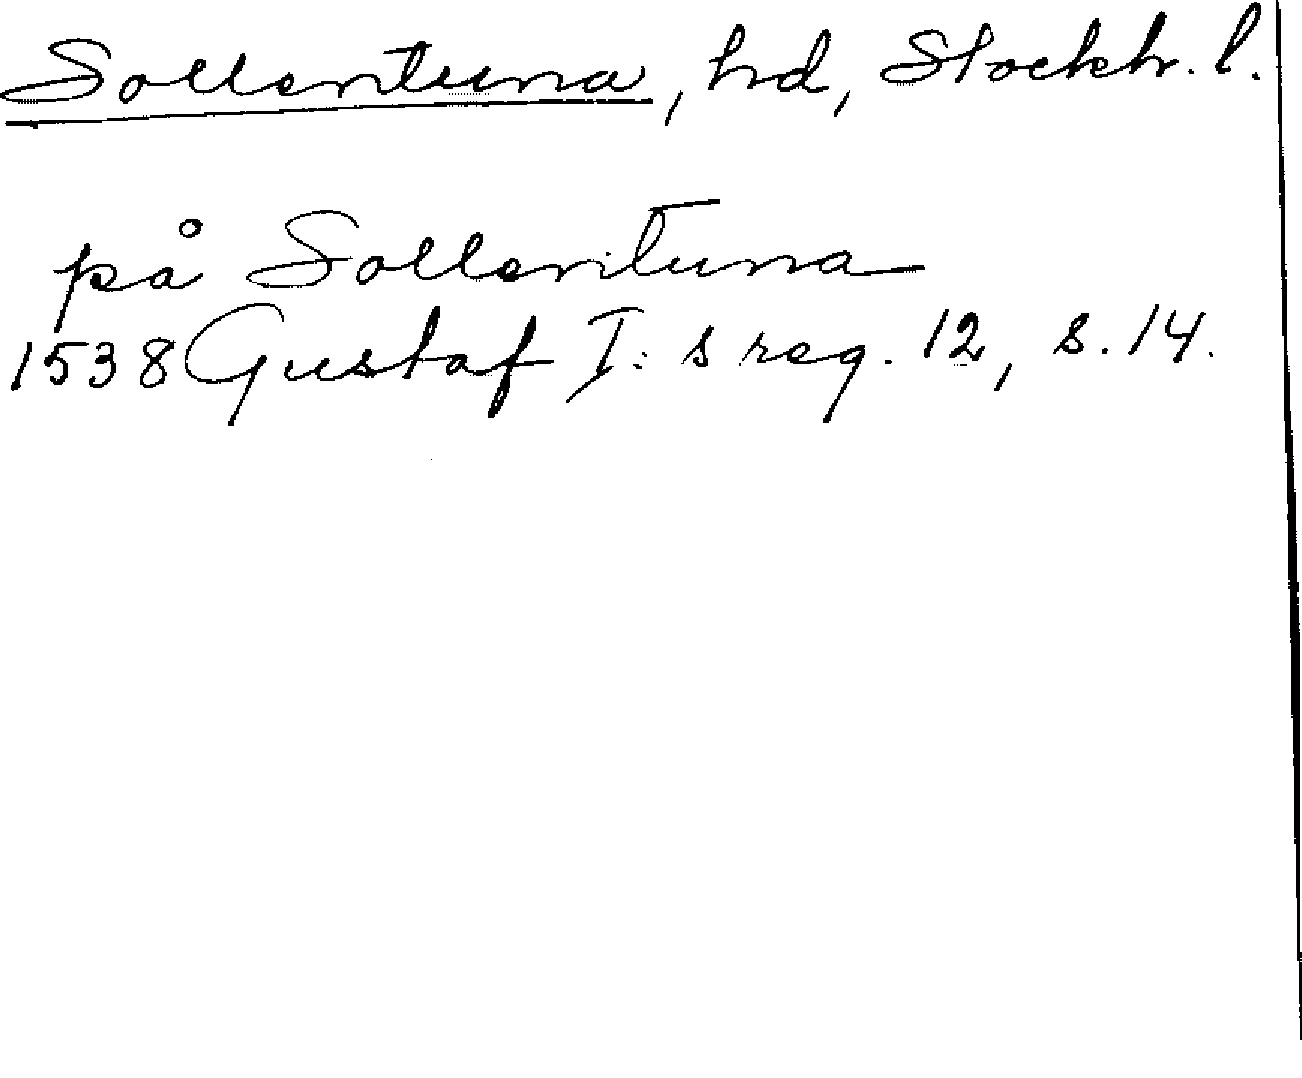 Sollentuna, hd, Stockh. l.
på Sollentuna
1538 Gustaf I: s reg. 12, s. 14.